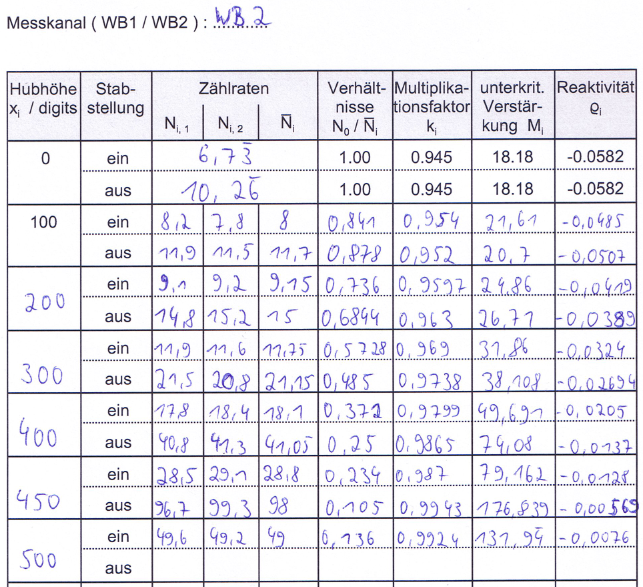 Messkanal ( WB1 / WB2 ) : WB 2
Hubhöhe xᵢ / digits Stab-stellung Zählraten Nᵢ, ₁ Nᵢ, ₂ N̅ᵢ Verhält-nisse N₀ / N̅ᵢ Multiplika-tionsfaktor kᵢ unterkrit. Verstär-kung Mᵢ Reaktivität ϱᵢ
0 ein 6,73̅ 1.00 0.945 18.18 -0.0582
aus 10,26̅ 1.00 0.945 18.18 -0.0582
100 ein 8,2 7,8 8 0,841 0,954 21,61 -0,0485
aus 11,9 11,5 11,7 0,878 0,952 20,7 -0,0507
200 ein 9,1 9,2 9,15 0,736 0,9597 24,86 -0,0419
aus 14,8 15,2 15 0,6844 0,963 26,71 -0,0389
300 ein 11,9 11,6 11,75 0,5728 0,969 31,86 -0,0324
aus 21,5 20,8 21,15 0,485 0,9738 38,108 -0,02694
400 ein 17,8 18,4 18,1 0,372 0,9799 49,691 -0,0205
aus 40,8 41,3 41,05 0,25 0,9865 74,08 -0,0137
450 ein 28,5 29,1 28,8 0,234 0,987 79,162 -0,0128
aus 96,7 99,3 98 0,105 0,9943 176,839 -0,00569
500 ein 49,6 49,2 49 0,136 0,9924 131,94 -0,0076
aus